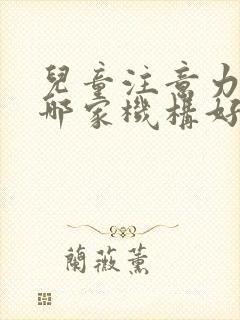 兒童注意力
哪家機構好
蘭薇薰